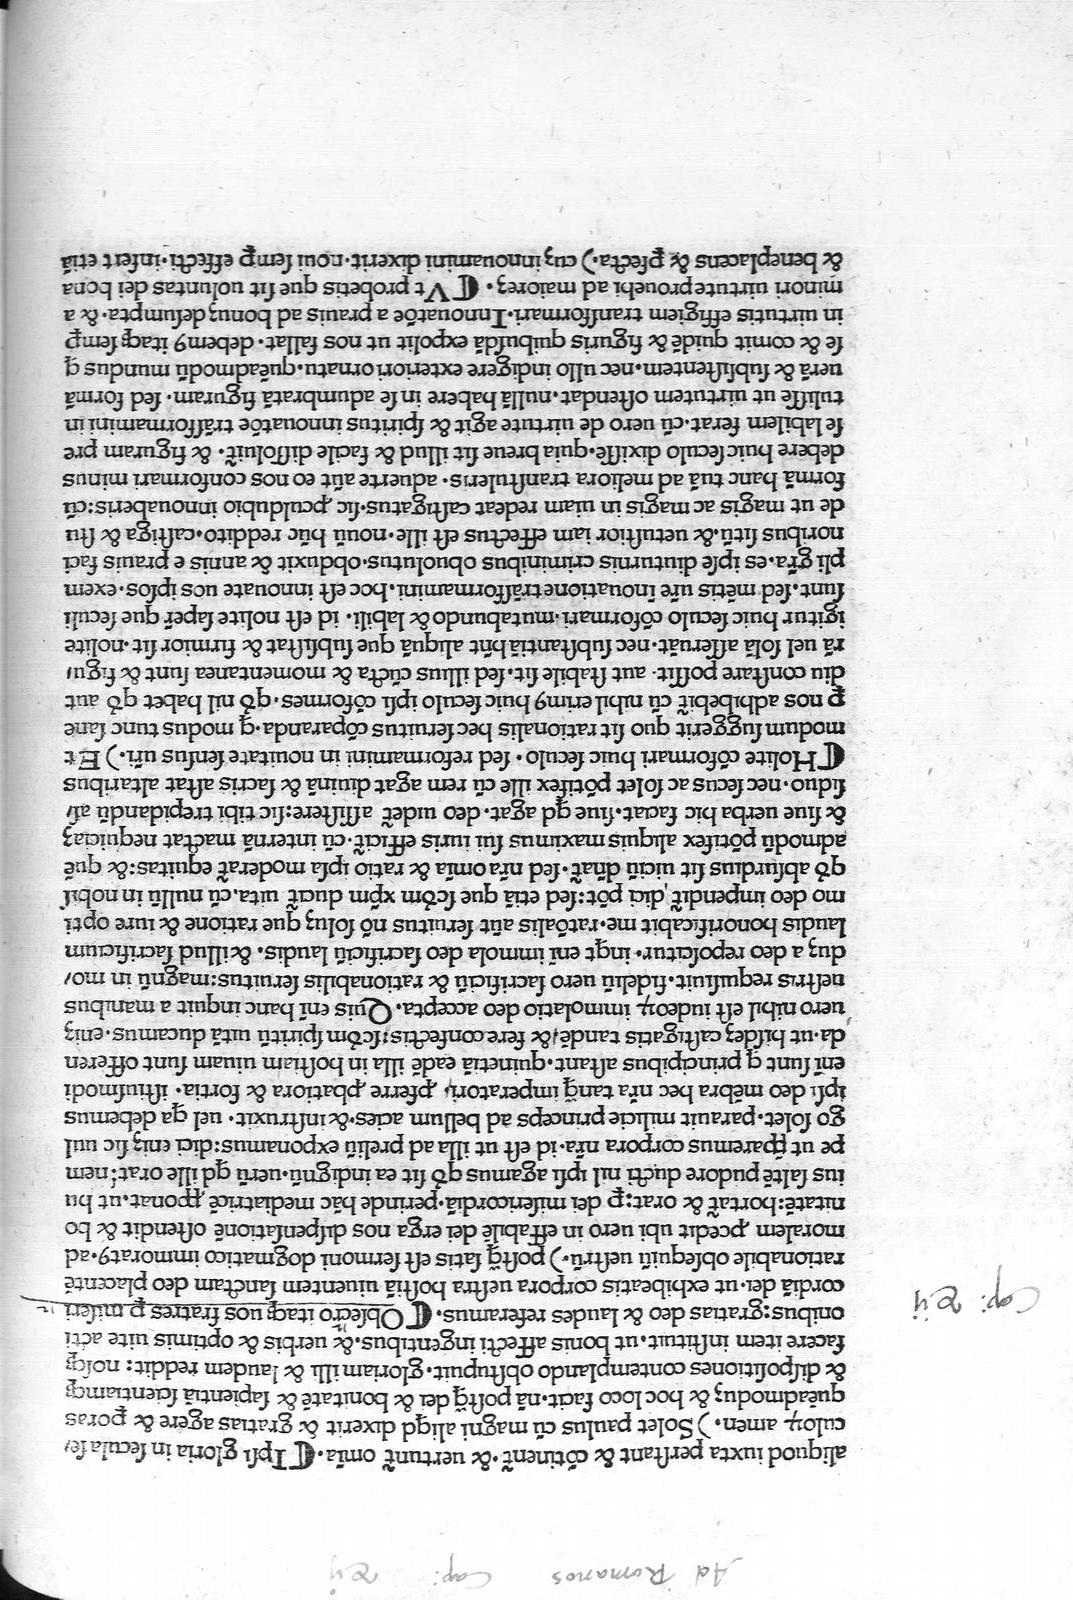 Ad Romanos Cap: xij
aliquod iuxta perſtant & cōtinent̃·&·uertunt̃ omīa·⸿Ipſi gloria in ſecula ſe,
culoꝝ amen·) Solet paulus cū magni aliqd dixerit & gratias agere & p̄oras
quēadmoduꝫ & hoc loco facit·nā poſtq̄ dei & bonitatē & ſapientiā ſcientiamq;
& diſpoſitiones contemplando obſtupuit·gloriam illi & laudem reddit: noſq;
facere item inſtituit·ut bonis affecti ingentibus·& uerbis & optimis uite acti
onibus: gratias deo & laudes referamus·⸿Obſecro itaq; uos fratres ꝑ miſeri
Cap: xij
cordiā dei·ut exhibeatis corpora ueſtra hoſtiā uiuentem ſanctam deo placentē
rationabile obſequiū ueſtrū·) poſtq̄ ſatis eſt ſermoni dogmatico immorat9·ad
moralem ꝓcedit ubi uero in effabilē dei erga nos diſpēſationē oſtendit & bo
nitatē: hortat̃ & orat: ꝑ dei miſericordiā·perinde hāc mediatricē ꝓponat·ut hu
ius ſaltē pudore ducti nil ipſi agamus qď ſit ea indignū·uerū qd ille orat: nem
pe ut p̄paremus corpora nr̄a·id eſt ut illa ad preliū exponamus: dici eniꝫ ſic uul
go ſolet·parauit milicie princeps ad bellum acies·& inſtruxit· uel qa debemus
ipſi deo mēbra hec nr̄a tanq̄ imperatori, ꝓferre ꝓbatiora & fortia· iſtiuſmodi
eni ſunt q principibus aſtant·quinetiā eadē illa in hoſtiam uiuam ſunt offeren
da·ut hiſdeꝫ caſtigatis tandē, & fere confectis: ſcďm ſpiritū uitā ducamus·eniꝫ
uero nihil eſt iudeoꝝ immolatio deo accepta·Quis eni hanc inquit a manibus
ueſtris requiſiuit·fideliū uero ſacrificiū & rationabilis ſeruitus: magnū in mo,
duꝫ a deo repoſcitur· inqt enī immola deo ſacrificiū laudis· & illud ſacrificium
laudis honorificabit me·ratōalis aūt ſeruitus nō ſoluꝫ que ratione & iure opti
mo deo impendit̃ dici pōt: ſed etiā que ſcďm xp̄m ducit̃ uita·cū nullū in nobiſ
qď abſurdius ſit uiciū dn̄at̃·ſed nr̄a omīa & ratio ipſa moderat̃ equitas: & quē
admodū pōtifex aliquis maximus ſui iuris efficit̃·cū internā mactat nequiciaꝫ
& ſiue uerba hic faciat·ſiue qd agat·deo uidet̃ aſſiſtere: ſic tibi trepidandū aſ,
ſiduo·nec ſecus ac ſolet pōtifex ille cū rem agat diuinā & ſacris aſtat altaribus
⸿Nolite cōformari huic ſeculo· ſed reformamini in nouitate ſenſus ur̄i·) Et
modum ſuggerit quo ſit rationalis hec ſeruitus cōparanda·q modus tunc ſane
ꝑ nos adhibebit̃ cū nihil erim9 huic ſeculo ipſi cōformes·qď nil habet qď aut
diu conſtare poſſit· aut ſtabile ſit·ſed illius cūcta & momentanea ſunt & figu,
rā uel ſolā aſſeruāt·nec ſubſtantiā hn̄t aliquā que ſubſiſtat & firmior ſit·nolite
igitur huic ſeculo cōformari·mutabundo & labili· id eſt nolite ſaper̄ que ſeculi
ſunt·ſed mētis ur̄e inouatione trāſformamini·hoc eſt innouate uos ipſos·exem
pli gr̄a·es ipſe diuturnis criminibus obuolutus·obduxit & annis e prauis faci
noribus ſitū·& uetuſtior iam effectus eſt ille·nouū hūc reddito·caſtiga & ſtu
de ut magis ac magis in uiam redeat caſtigatus·ſic ꝓculdubio innouaberis: cū
formā hanc tuā ad meliora tranſtuleris· aduerte aūt eo nos conformari minus
debere huic ſeculo dixiſſe·quia breue ſit illud & facile diſſoluit̃· & figuram pre
ſe labilem ferat·cū uero de uirtute agit & ſpiritus innouatōe trāſformamini in
tuliſſe ut uirtutem oſtendat·nullā habere in ſe adumbratā figuram· ſed formā
uerā & ſubſiſtentem·nec ullo indigere exteriori ornatu·quēadmodū mundus q
ſe & comit quidē & figuris quibuſdā expolit ut nos fallat· debem9 itaq; ſemꝑ
in uirtutis effigiem tranſformari·Innouatōe a prauis ad bonuꝫ deſumpta· & a
minori uirtute prouehi ad maioreꝫ·⸿Vt probetis que ſit uoluntas dei bona
& beneplacens & ꝑfecta·) cuꝫ innouamini dixerit·noui ſemꝑ effecti·infert etiā